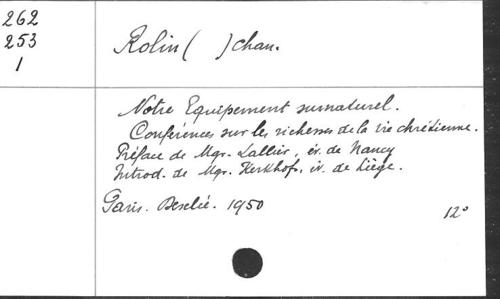 262
253
1
Rolin ( ) chan.
Notre Equipement surnaturel.
Conférences sur les richesses de la vie chrétienne.
Préface de Mgr. Lallier, év. de Nancy
Introd. de Mgr. Kerkhofs, év. de Liège.
Paris. Desclée. 1950
12°